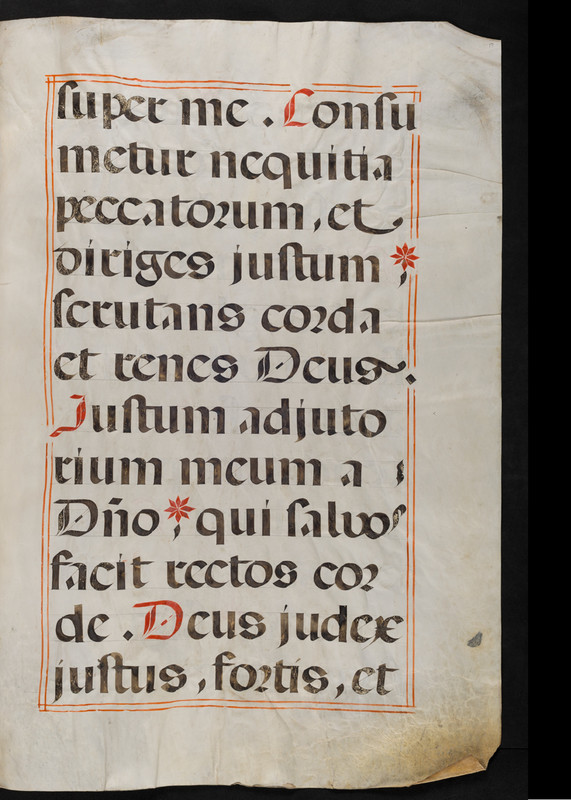 super me . Consu
metur nequitia
peccatorum , et
diriges justum *,
scrutans corda
et renes Deus .
Justum adjuto
rium meum a
Dño *, qui salvos
facit rectos cor
de . Deus judex
justus , fortis , et